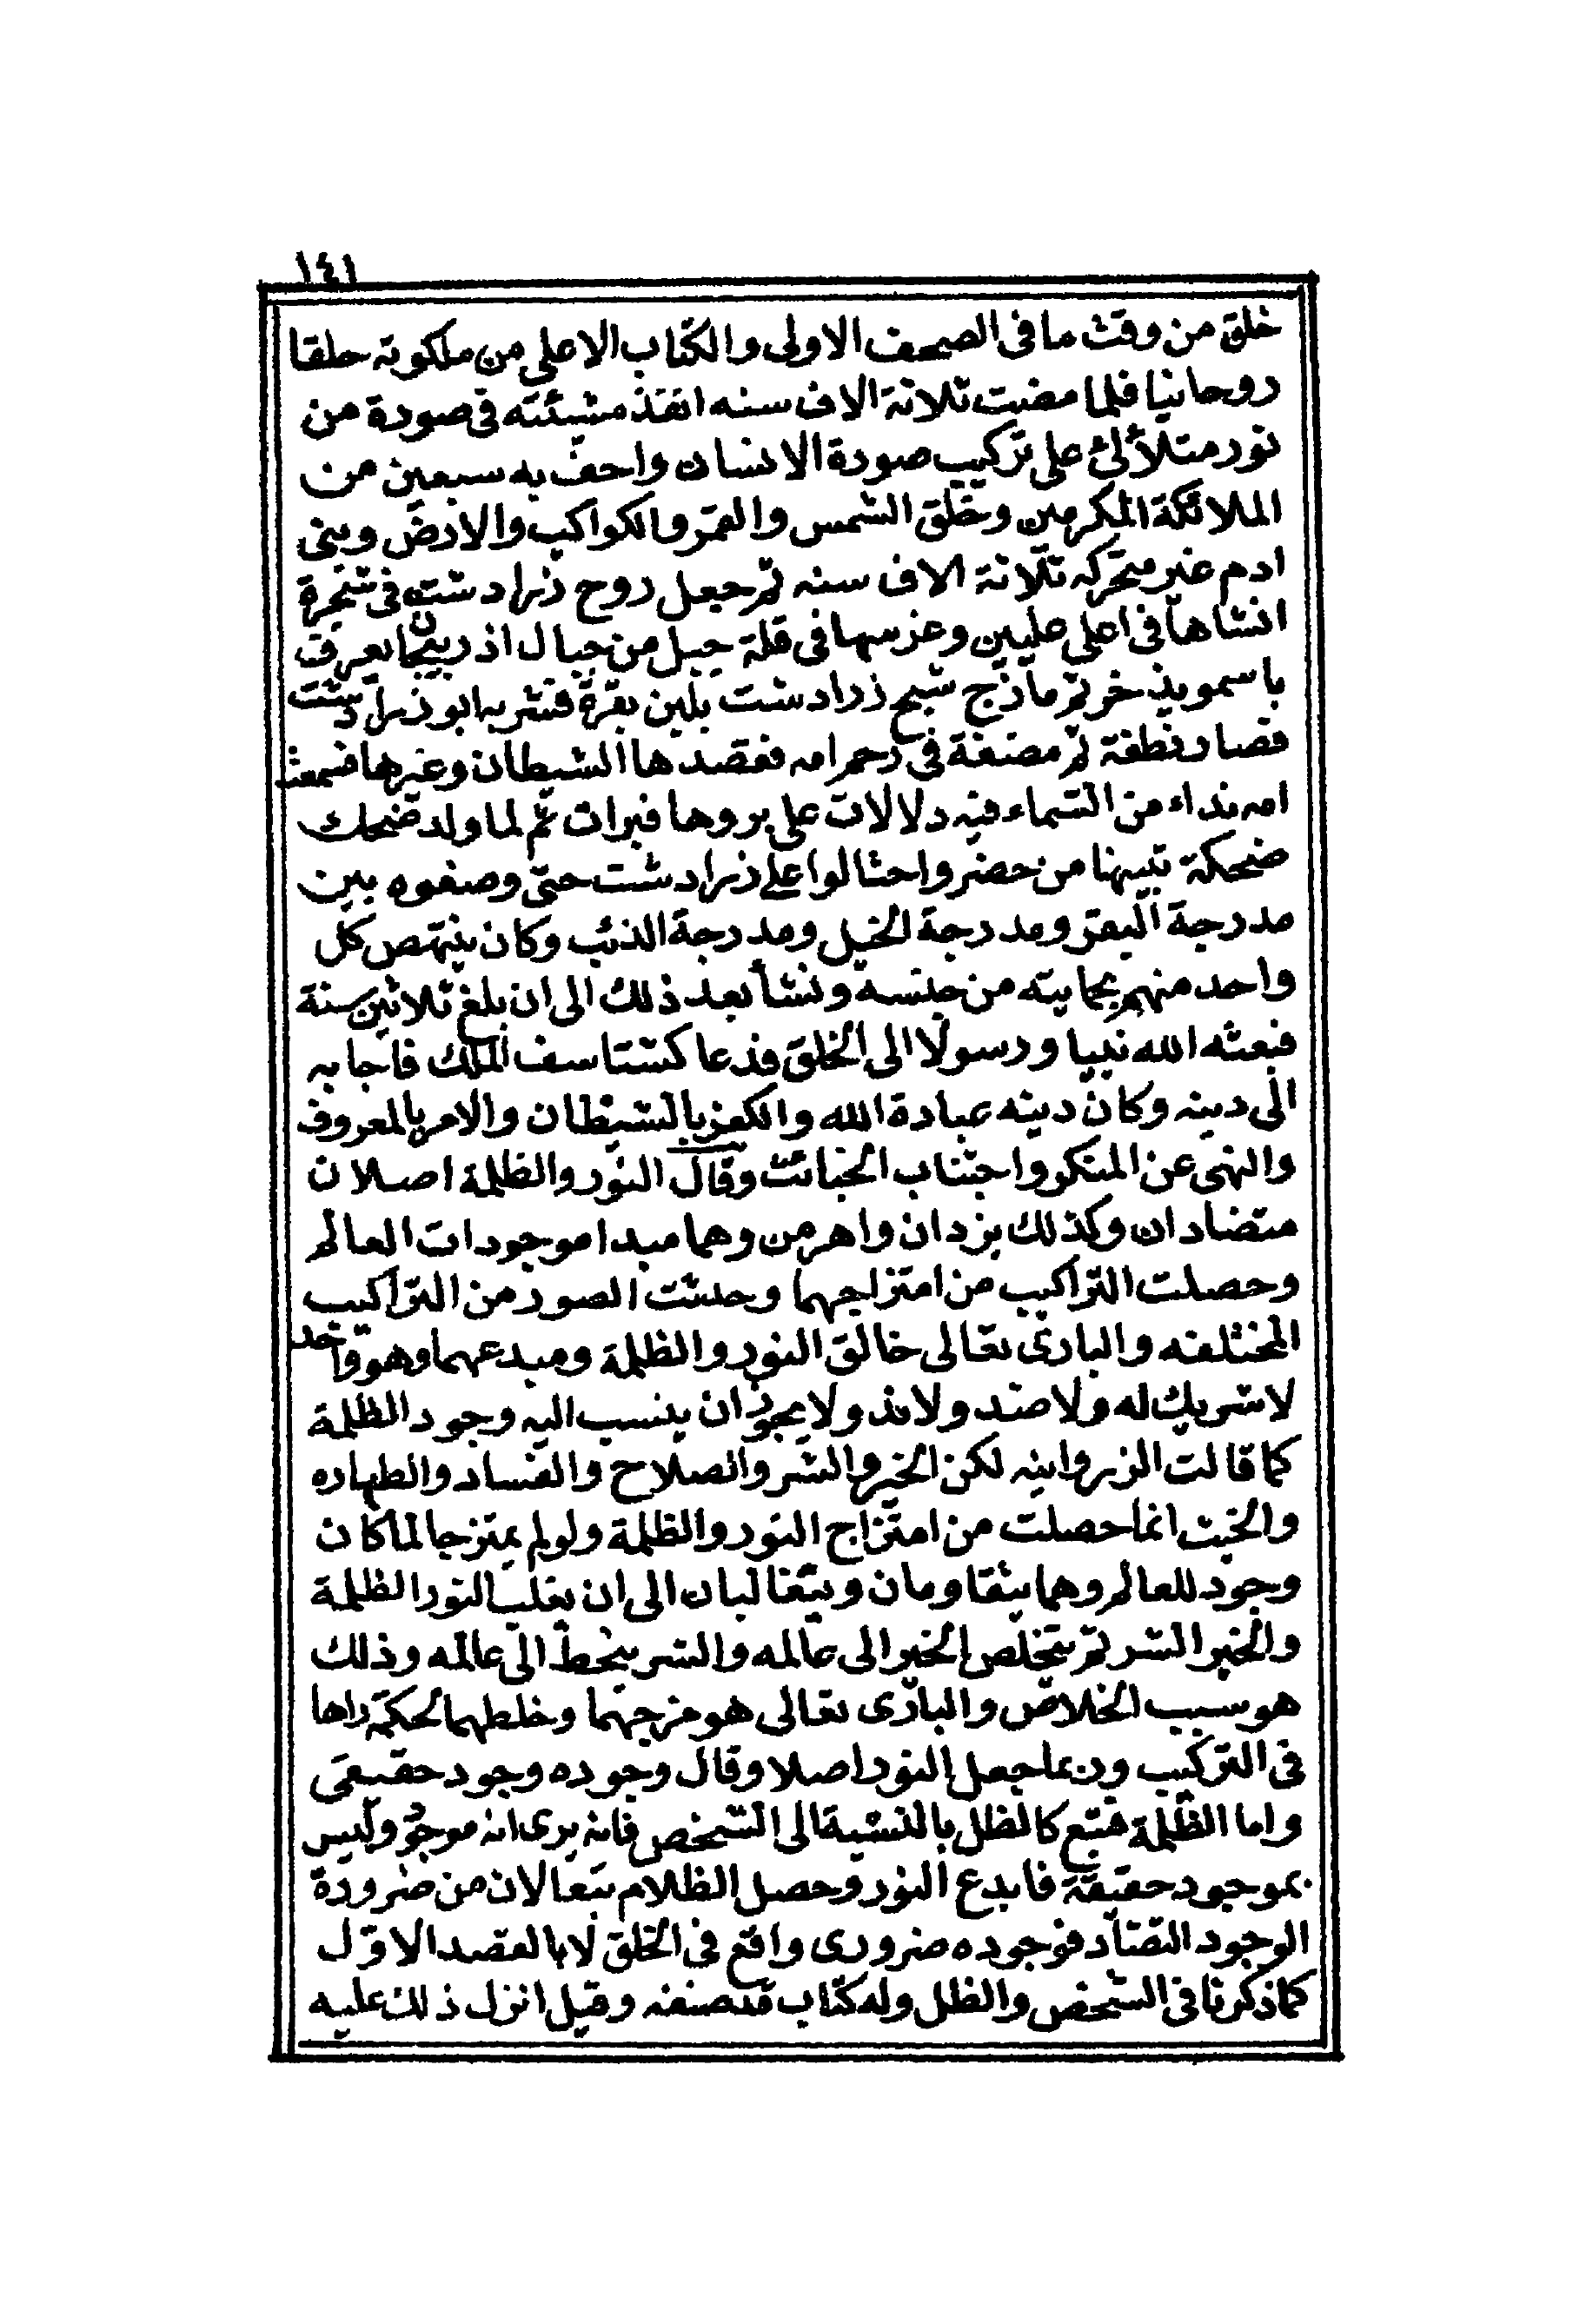 ١٤١
خلق من وقت ما فى الصحف الاولى والكتاب الاعلى من ملكوته خلقا
روحانيا فلما مضيت ثلاثة الاف سنه انفذ مشيئته فى صورة من
نور متلألئ على تركيب صورة الانسان واحف به سبعين من
الملائكة المكرمين وخلق الشمس والقمر والكواكب والارض وبنى
ادم غير متحركه ثلاثة الاف سنه ثم جعل روح زرادشت فى شجرة
انشاها فى اعلى عليين وغرسها فى قلة جبل من جبال اذربيجان يعرف
باسمويذ خر ثم مازج شبح زرادشت بلبن بقرة فشربه ابو زرادشت
فصار نطفة ثم مضغة فى رحم امه فقصدها الشيطان وغيرها فسمعت
امه نداء من السماء فيه دلالات على بروها فبرات ثم لما ولد ضحك
ضحكة تبينها من حضر واحتالوا على زرادشت حتى وضعوه بين
مدرجة البقر ومدرجة الخيل ومدرجة الذئب وكان ينتهض كل
واحد منهم بحمايته من جنسه ونشأ بعد ذلك الى ان بلغ ثلاثين سنة
فبعثه الله نبيا ورسولا الى الخلق فدعا كشتاسف الملك فاجابه
الى دينه وكان دينه عبادة الله والكفر بالشيطان والامر بالمعروف
والنهى عن المنكر واجتناب الخبائث وقال النور والظلمة اصلان
متضادان وكذلك يزدان واهرمن وهما مبدا موجودات العالم
وحصلت التراكيب من امتزاجهما وحدثت الصور من التراكيب
المختلفه والبارى تعالى خالق النور والظلمة ومبدعهما وهو واحد
لا شريك له ولا ضد ولا ند ولا يجوز ان ينسب اليه وجود الظلمة
كما قالت الزروانيه لكن الخير والشر والصلاح والفساد والطهاره
والخبث انما حصلت من امتزاج النور والظلمة ولو لم يمتزجا لما كان
وجود للعالم وهما يتقاومان ويتغالبان الى ان يغلب النور الظلمة
والخير الشر ثم يتخلص الخير الى عالمه والشر ينحط الى عالمه وذلك
هو سبب الخلاص والبارى تعالى هو مزجهما وخلطهما لحكمة راها
فى التركيب وربما جعل النور اصلا وقال وجوده وجود حقيقى
واما الظلمة فتبع كالظل بالنسبة الى الشخص فانه يرى انه موجود وليس
بموجود حقيقة فابدع النور وحصل الظلام تبعا لان من ضرورة
الوجود التضاد فوجوده ضرورى واقع فى الخلق لا بالقصد الاول
كما ذكرنا فى الشخص والظل وله كتاب قد صنفه وقيل انزل ذلك عليه